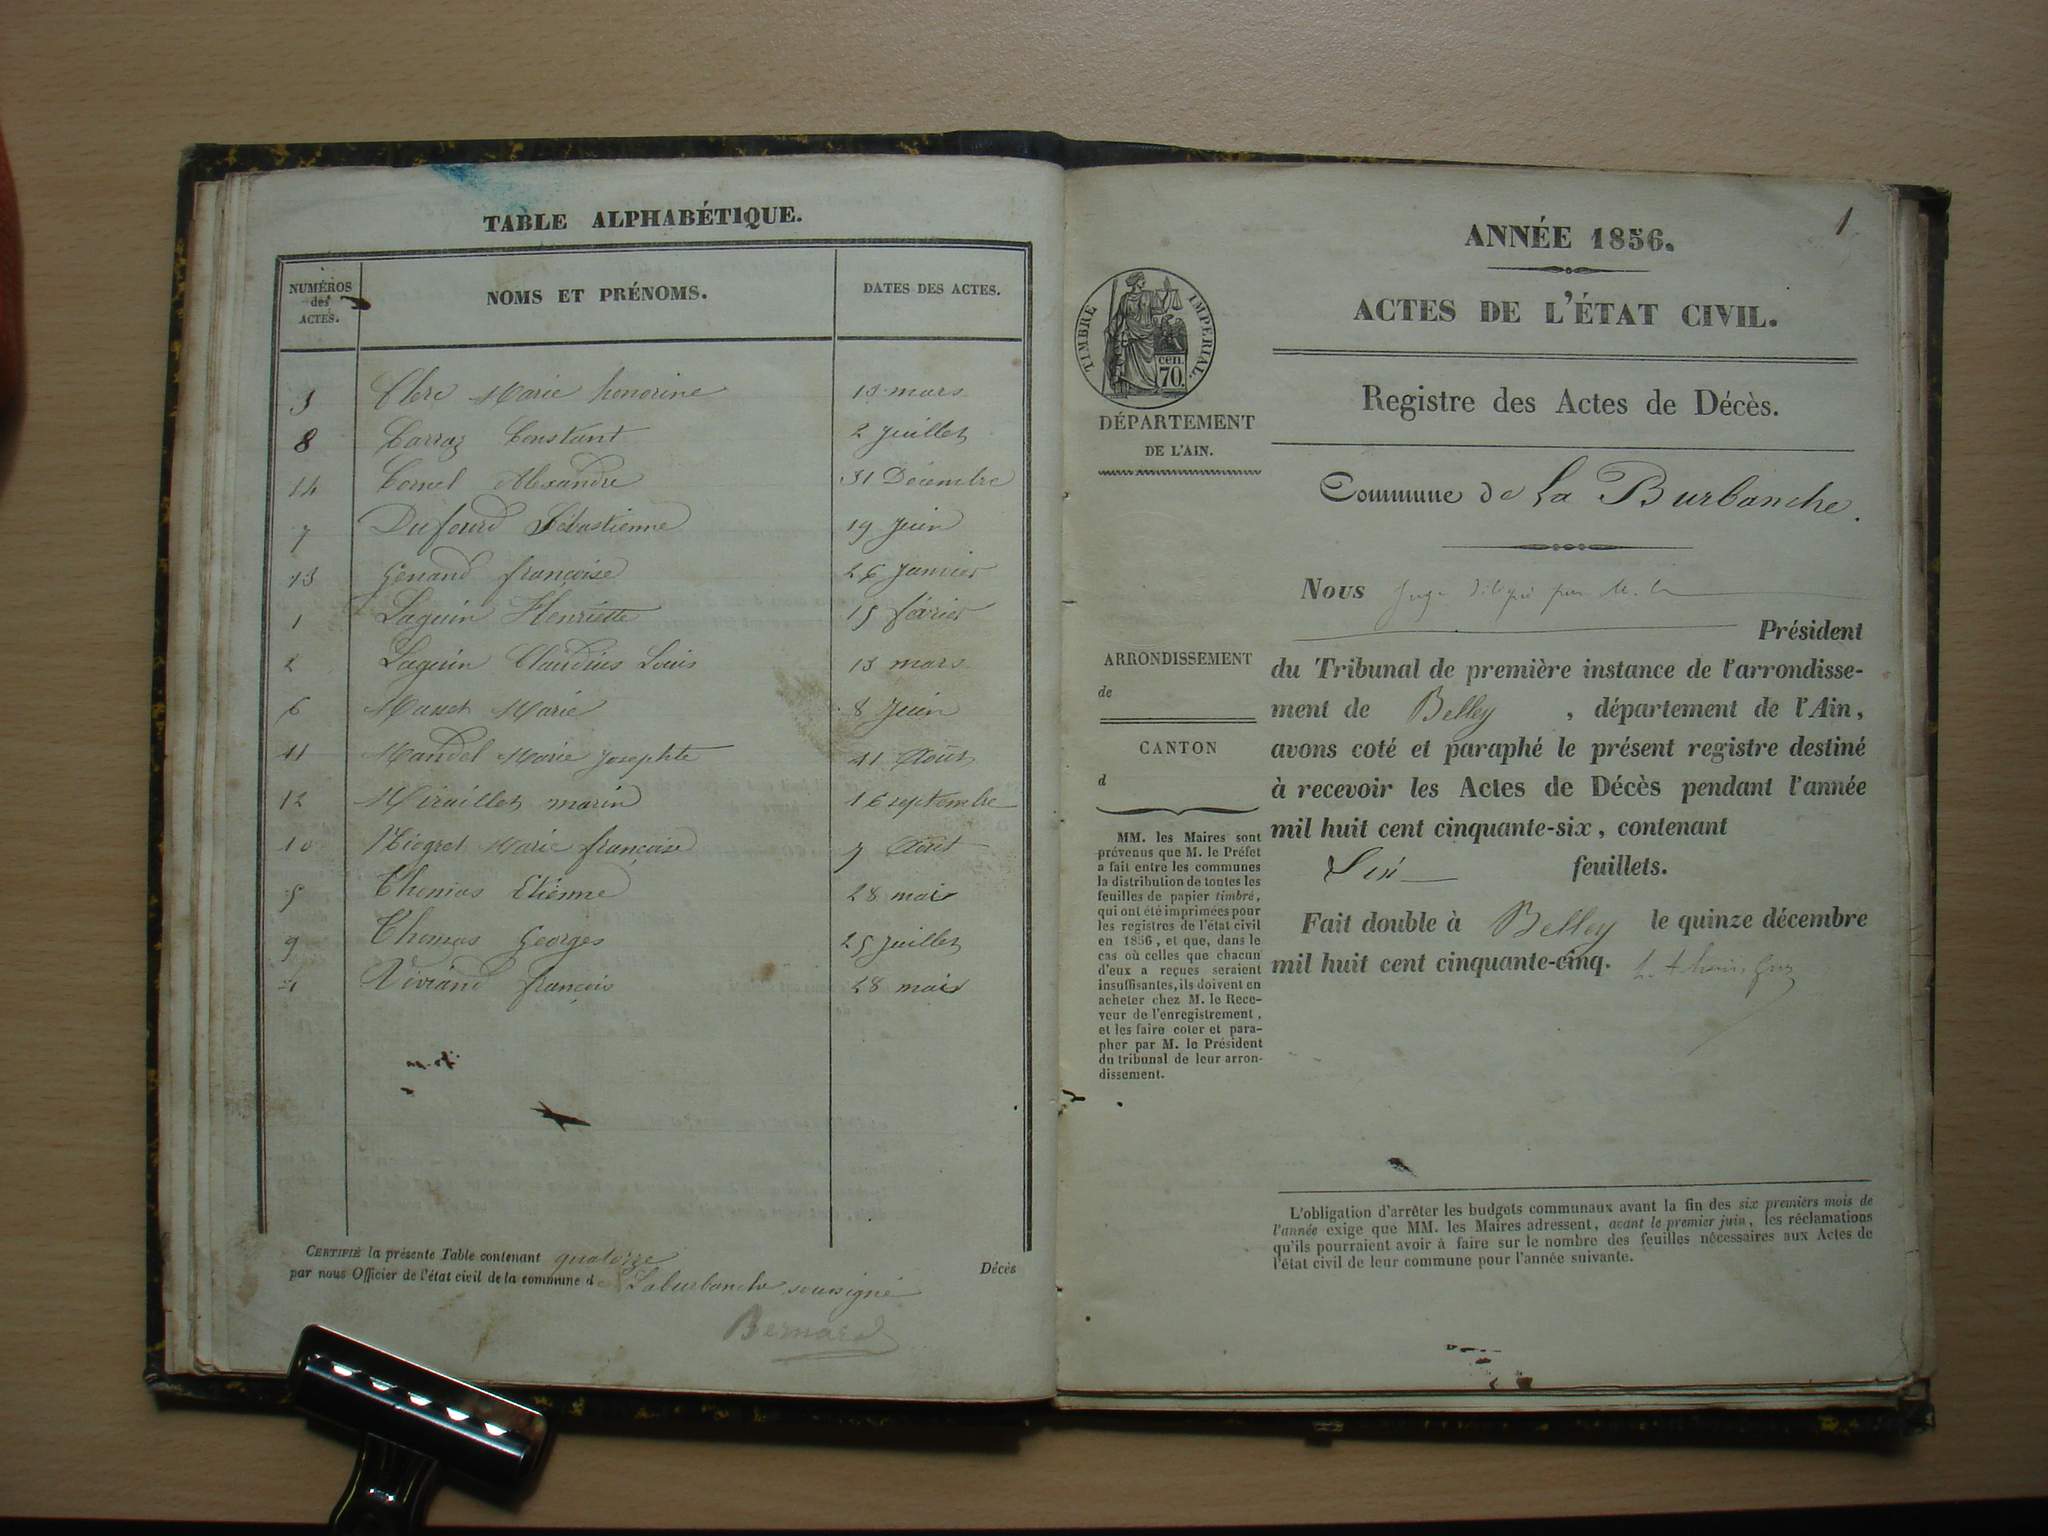 TABLE ALPHABÉTIQUE.
NUMÉROS des ACTES. NOMS ET PRÉNOMS. DATES DES ACTES.
3 Clerc Marie honorine 13 mars
8 Carraz Constant 2 Juillet
14 Cornel Alexandre 31 Décembre
7 Dufourd Sébastienne 19 Juin
13 Genand françoise 26 Janvier
1 Laguin Henriette 15 février
2 Laguin Claudius Louis 13 mars
6 Marie 8 Juin
11 Mandel Marie Josephte 11 Août
12 Miraillet marin 16 septembre
10 Marie françoise 7 Août
5 Thomas Etienne 28 mai
9 Thomas Georges 25 Juillet
4 Viviand françois 28 mai
CERTIFIÉ la présente Table contenant quatorze Décès
par nous Officier de l'état civil de la commune de Laburbanche soussigné
Bernard
1
ANNÉE 1856.
ACTES DE L'ÉTAT CIVIL.
TIMBRE IMPERIAL.
cen. 70.
DÉPARTEMENT
DE L'AIN.
Registre des Actes de Décès.
Commune de La Burbanche.
Nous Juge délégué par M. le
Président
du Tribunal de première instance de l'arrondisse-
ment de Belley, département de l'Ain,
avons coté et paraphé le présent registre destiné
à recevoir les Actes de Décès pendant l'année
mil huit cent cinquante-six, contenant
Six feuillets.
Fait double à Belley le quinze décembre
mil huit cent cinquante-cinq.
ARRONDISSEMENT
de
CANTON
d
MM. les Maires sont
prévenus que M. le Préfet
a fait entre les communes
la distribution de toutes les
feuilles de papier timbré,
qui ont été imprimées pour
les registres de l'état civil
en 1856, et que, dans le
cas où celles que chacun
d'eux a reçues seraient
insuffisantes, ils doivent en
acheter chez M. le Rece-
veur de l'enregistrement,
et les faire coter et para-
pher par M. le Président
du tribunal de leur arron-
dissement.
L'obligation d'arrêter les budgets communaux avant la fin des six premiers mois de
l'année exige que MM. les Maires adressent, avant le premier juin, les réclamations
qu'ils pourraient avoir à faire sur le nombre des feuilles nécessaires aux Actes de
l'état civil de leur commune pour l'année suivante.